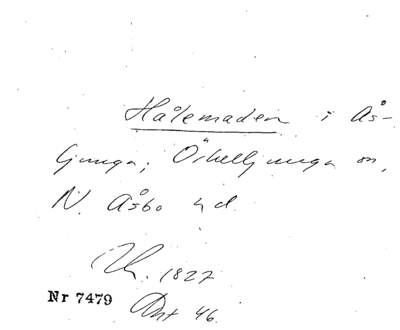 Hålemaden i Ås-
ljunga, Örkelljunga sn,
N. Åsbo hd.
Uh. 1827
Nr 7479 Dnt 46.